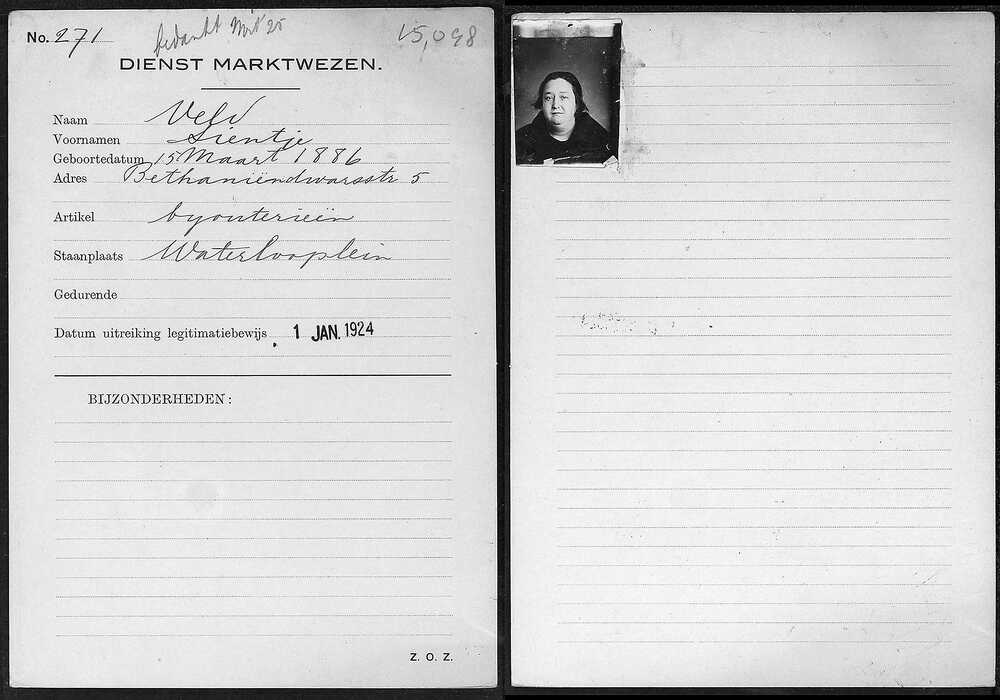 No. 271
bedankt Mrt '25
15,098
DIENST MARKTWEZEN.
Naam Veld
Voornamen Sientje
Geboortedatum 15 Maart 1886
Adres Bethaniëndwarsstr 5
Artikel byouterieën
Staanplaats Waterlooplein
Gedurende
Datum uitreiking legitimatiebewijs 1 JAN. 1924
BIJZONDERHEDEN:
Z. O. Z.